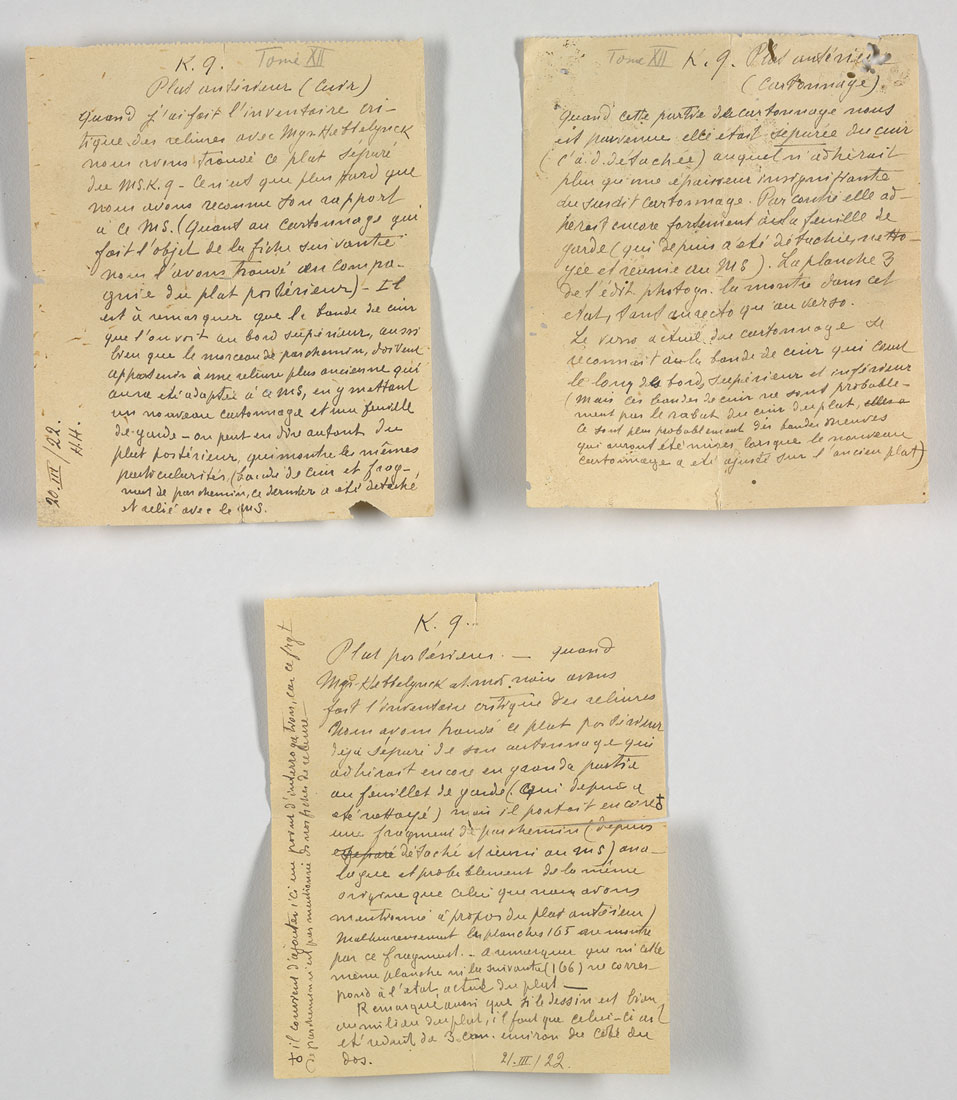 K. 9. Tome XII
Plat antérieur (Cuir)
Quand j'ai fait l'inventaire cri-
tique des reliures avec Mgr. Hebbelynck
nous avons trouvé ce plat séparé
du MS. K. 9 - Ce n'est que plus tard que
nous avons reconnu son rapport
à ce MS. (Quant au cartonnage qui
fait l'objet de la fiche suivante
nous l'avons trouvé en compa-
gnie du plat postérieur) - Il
est à remarquer que la bande de cuir
que l'on voit au bord supérieur, aussi
bien que le morceau de parchemin, doivent
appartenir à une reliure plus ancienne qui
aura été adaptée à ce MS, en y mettant
un nouveau cartonnage et une feuille
de garde - on peut en dire autant du
plat postérieur, qui montre les mêmes
particularités, (bande de cuir et frag-
ment de parchemin, ce dernier a été détaché
et relié avec le MS.
20. III / 22.
H.H.
Tome XII K. 9. Plat antérie
(Cartonnage)
Quand cette partie de cartonnage nous
est parvenue elle etait séparée du cuir
(c'à.d. détachée) auquel n'adhérait
plus qu'une épaisseur insignifiante
du susdit cartonnage. Par contre elle ad-
herait encore fortement à la feuille de
garde (qui depuis a été détachée, netto-
yée et réunie au MS). La planche 3
de l'édit. photogr. la montre dans cet
etat, tant au recto qu'au verso.
Le verso actuel du cartonnage se
reconnait à la bande de cuir qui court
le long des bords supérieur et inférieur
(Mais ces bandes de cuir ne sont probable-
ment pas le rabat du cuir du plat,
ce sont plus probablement des bandes neuves
qui auront été mises, lorsque le nouveau
cartonnage a été ajusté sur l'ancien plat)
K. 9.
Plat postérieur. — Quand
Mgr. Hebbelynck et moi nous avons
fait l'inventaire critique des reliures
nous avons trouvé ce plat postérieur
déjà séparé de son cartonnage qui
adhérait encore en grande partie
au feuillet de garde (qui depuis a
été nettoyé) mais il portait encore
un fragment de parchemin (depuis
séparé détaché et réuni au MS) ana-
logue et probablement de la même
origine que celui que nous avons
mentionné à propos du plat antérieur)
Malheureusement la planche 165 ne montre
pas ce fragment. - A remarquer que ni cette
même planche ni la suivante (166) ne corres-
pond à l'etat actuel du plat —
Remarqué aussi que si le dessin est bien
au milieu du plat, il faut que celui-ci ait
eté réduit de 3 cm. environ du côté du
dos. 21. III / 22.
il convient d'ajouter ici un point d'interrogation, car ce frgt
de parchemin n'est pas mentionné dans nos fiches de reliure —